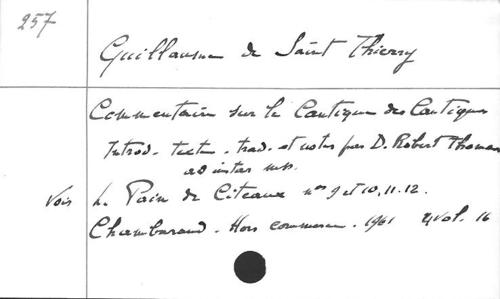 257
Guillaume de Saint Thierry
Commentaire sur le Cantique des Cantiques
Introd. texte. trad. et notes par D. Robert Thomas
ad instar mss.
Vois Le Pain de Citeaux nos 9 et 10, 11. 12.
Chambarand. Hors commerce. 1961 4 vol. 16